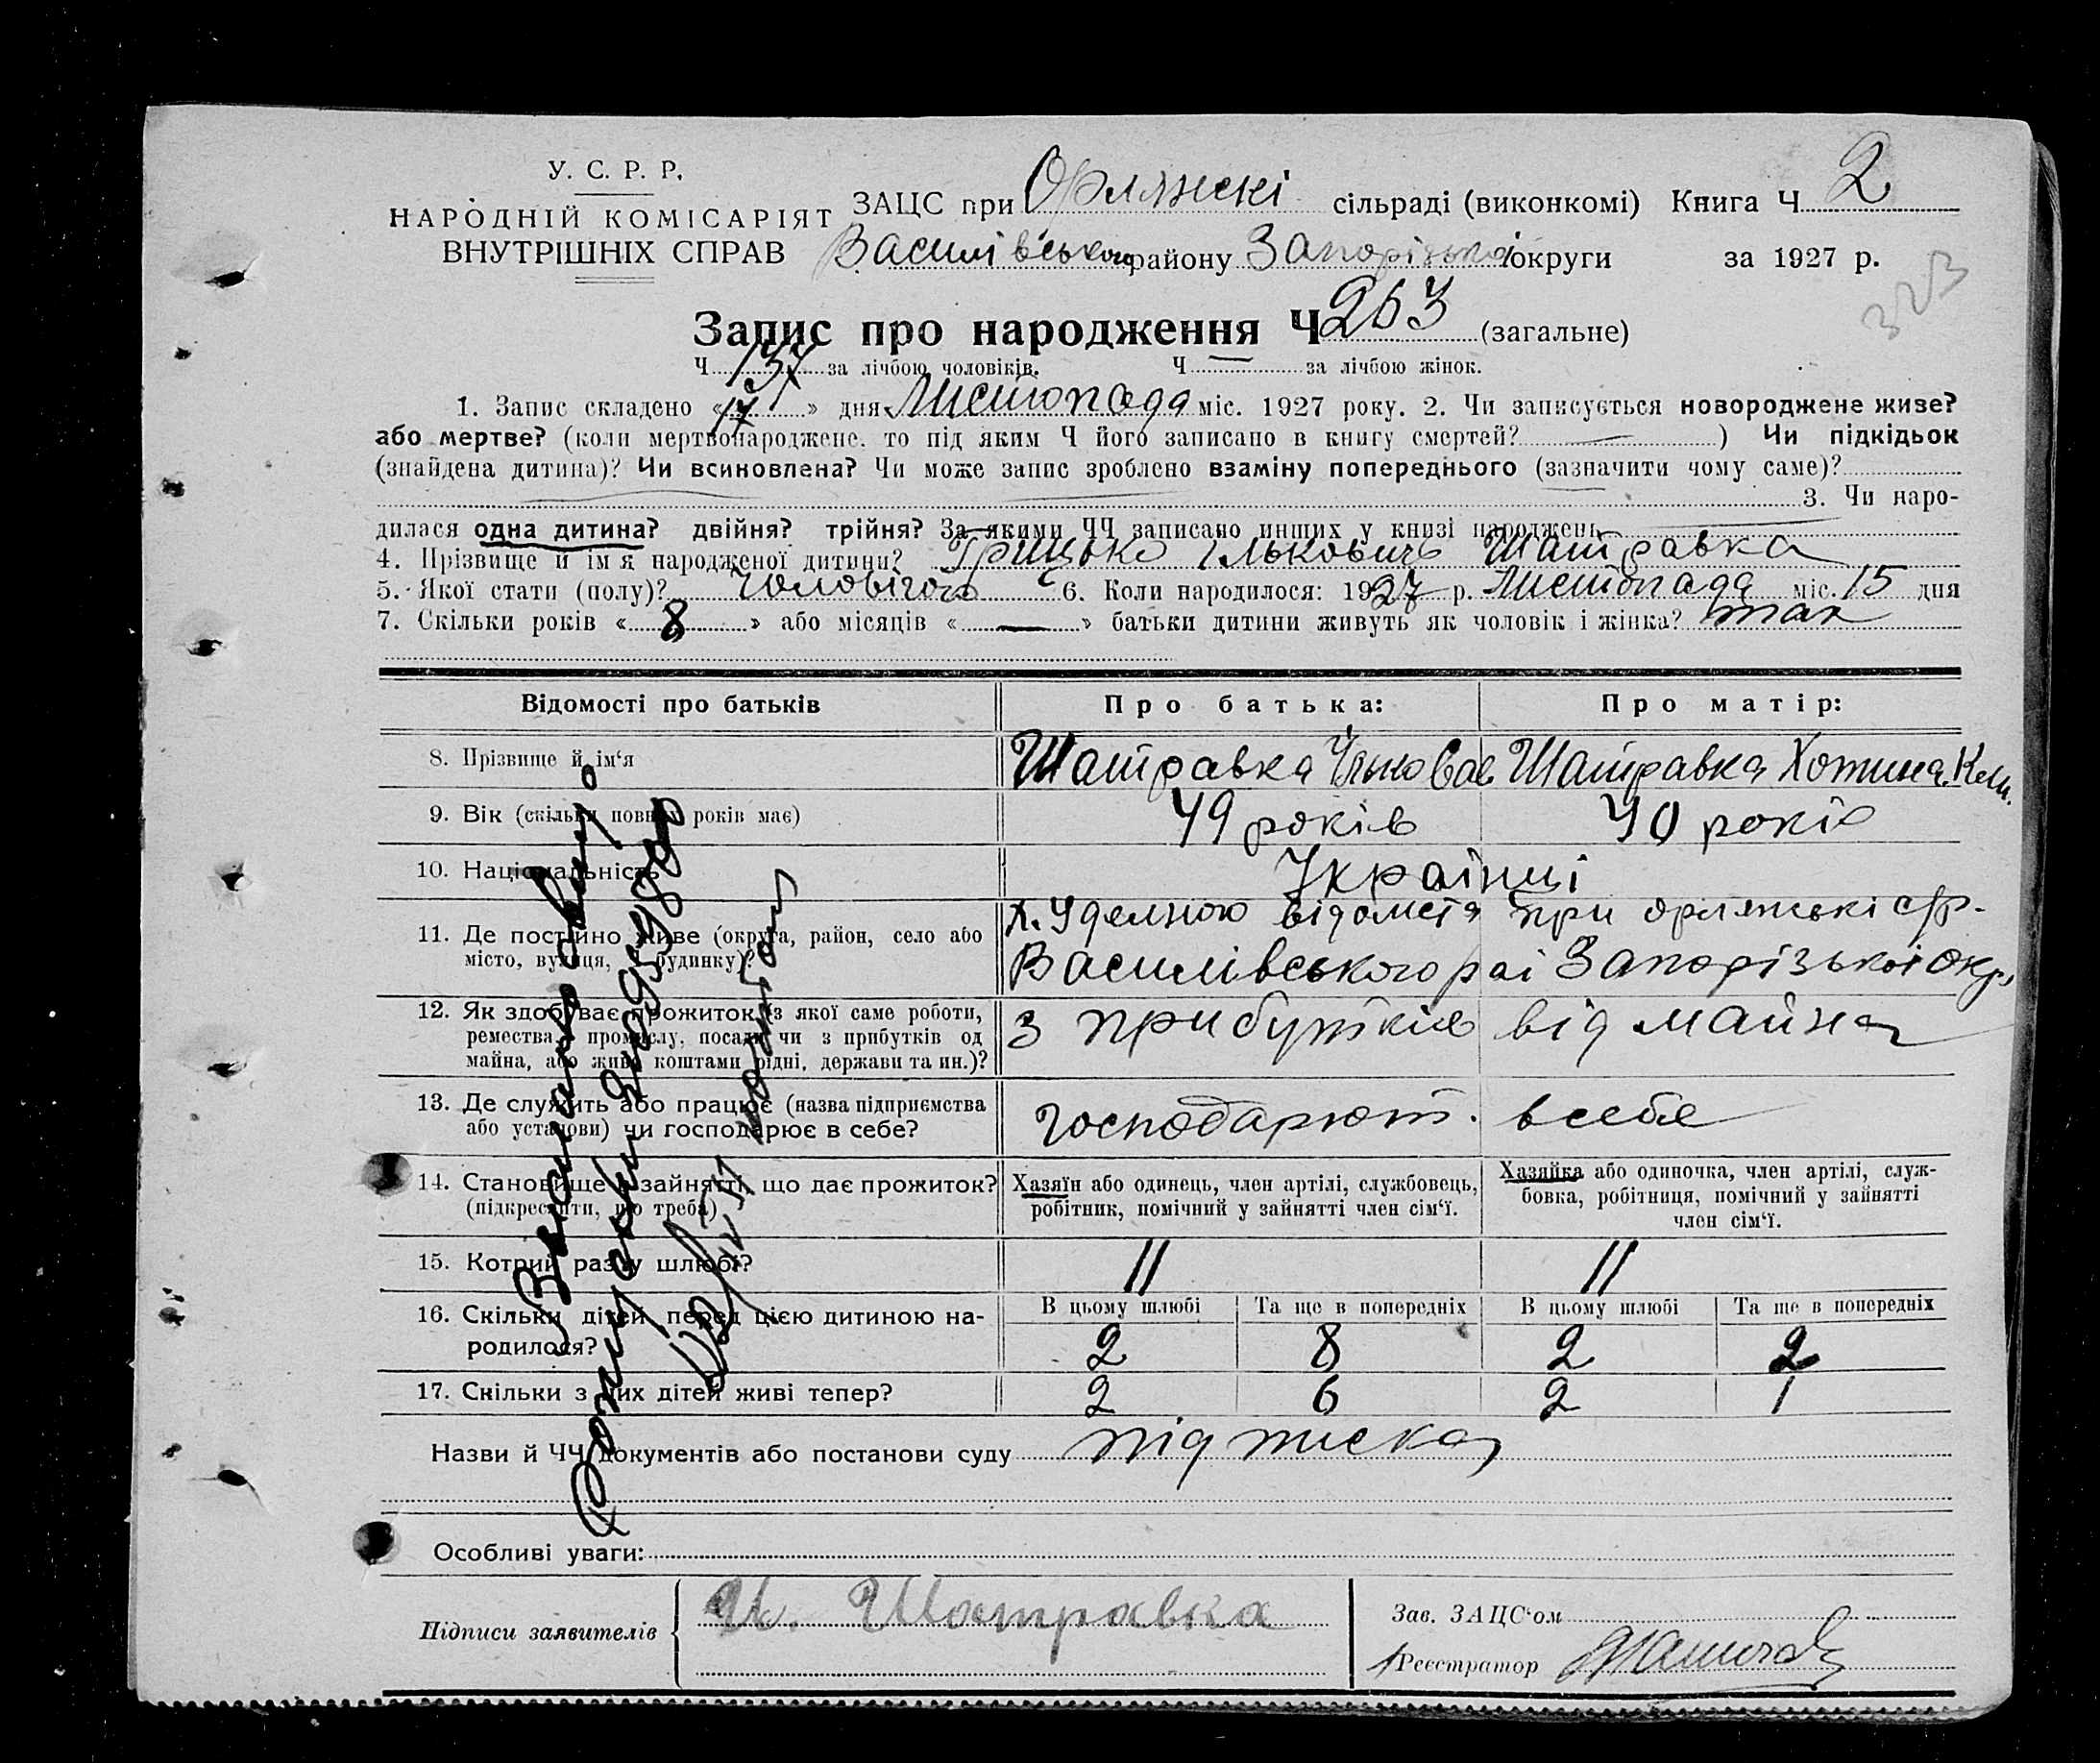 У. С. Р. Р.
НАРОДНІЙ КОМІСАРІЯТ
ВНУТРІШНІХ СПРАВ
ЗАЦС при Орлянскі сільраді (виконкомі) Книга Ч 2
Василівського району Запорізької округи за 1927 р.
323
Запис про народження Ч 253 (загальне)
Ч 137 за лічбою чоловіків. Ч — за лічбою жінок.
1. Запис складено «17» дня Листопада міс. 1927 року. 2. Чи записується новороджене живе?
або мертве? (коли мертвонароджене. то під яким Ч його записано в книгу смертей? — ) Чи підкідьок
(знайдена дитина)? Чи всиновлена? Чи може запис зроблено взаміну попереднього (зазначити чому саме)?
3. Чи наро-
дилася одна дитина? двійня? трійня? За якими ЧЧ записано инших у книзі народжень
4. Прізвище й ім'я народженої дитини? Грицько Ількович Шатравка
5. Якої стати (полу)? чоловічого 6. Коли народилося: 1927 р. Листопада міс. 15 дня
7. Скільки років «8» або місяців «—» батьки дитини живуть як чоловік і жінка? так
Відомості про батьків Про батька: Про матір:
8. Прізвище й ім'я Шатравка Ілько Вас Шатравка Хотина Клим.
9. Вік (скільки повних років має) 49 років 40 років
10. Національність Українці
11. Де постійно живе (округа, район, село або
місто, вулиця, будинку)?
х. Уделного відомста при орлянські с/р.
Василівського раі Запорізької окр,
12. Як здобуває прожиток (з якої саме роботи,
ремества, промислу, посади чи з прибутків од
майна, або живе коштами рідні, держави та ин.)?
з прибутків від майна
13. Де служить або працює (назва підприємства
або установи) чи господарює в себе?
господарют. всебе
14. Становище в зайнятті, що дає прожиток?
(підкреслити, що треба)
Хазяїн або одинець, член артілі, службовець,
робітник, помічний у зайнятті член сім'ї.
Хазяйка або одиночка, член артілі, служ-
бовка, робітниця, помічний у зайнятті
член сім'ї.
15. Котрий раз у шлюбі? II II
16. Скільки дітей перед цією дитиною на-
родилося?
В цьому шлюбі Та ще в попередніх В цьому шлюбі Та ще в попередніх
2 8 2 2
17. Скільки з них дітей живі тепер? 2 6 2 1
Назви й ЧЧ документів або постанови суду підписка
Особливі уваги:
Підписи заявителів И. Шатравка
Зав. ЗАЦС'ом
Реєстратор